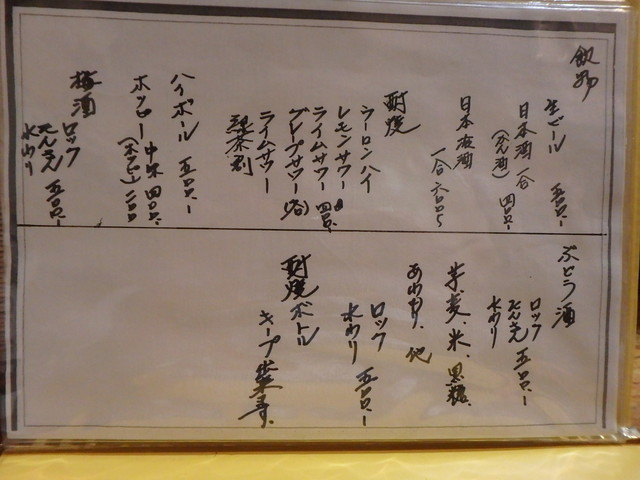 飲物
生ビール 五〇〇、
日本酒 一合 四〇〇、
(かん酒)
日本夜酒
一合 六〇〇、
酎焼
ウーロンハイ
レモンサワー
ライムサワー 四〇〇、
グレプサワー
ライムサワー
ハイボール 五〇〇、
ホッピー 中味 四〇〇、
(ホッピー) 二〇〇
梅酒
ロック
たんさん 五〇〇、
水わり
ぶどう酒
ロック
たんさん 五〇〇、
水わり
芋、麦、米、黒糖、
あわもり、他
ロック
水わり 五〇〇、
酎焼ボトル
キープ